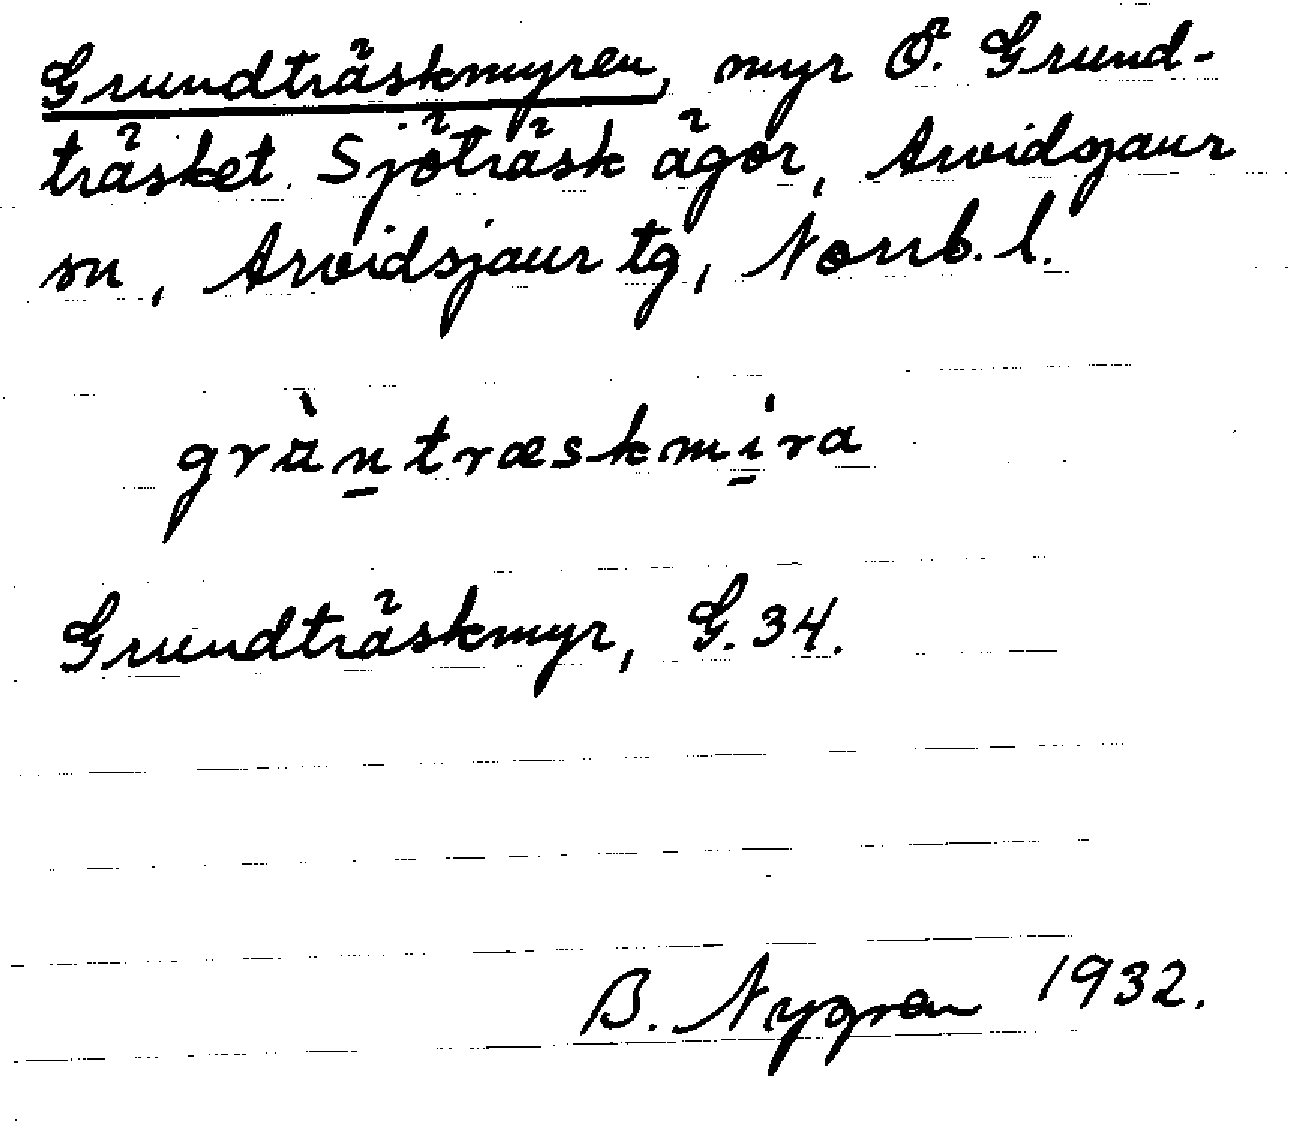 Grundträskmyren, myr Ö. Grund-
träsket Sjöträsk ägor, Arvidsjaur
sn, Arvidsjaur tg, Norrb. l.
grùntræskmira
Grundträskmyr, G. 34.
B. Nygren 1932.